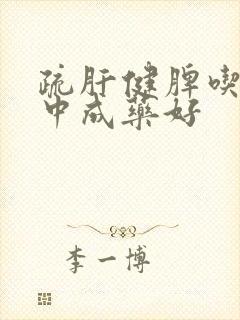 疏肝健脾喫
中成藥好
李一博